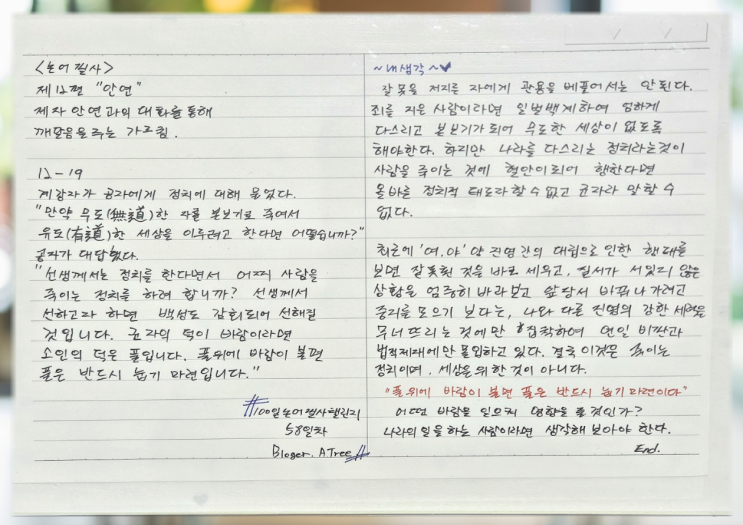 <논어필사>
제12편 "안연"
제자 안연과의 대화를 통해
깨달음을 주는 가르침.
12-19
계강자가 공자에게 정치에 대해 물었다.
"만약 무도(無道)한 자를 본보기로 죽여서
유도(有道)한 세상을 이루려고 한다면 어떻습니까?"
공자가 대답했다.
"선생께서는 정치를 한다면서 어찌 사람을
죽이는 정치를 하려 합니까? 선생께서
선하고자 하면 백성도 감화되어 선해질
것입니다. 군자의 덕이 바람이라면
소인의 덕은 풀입니다. 풀위에 바람이 불면
풀은 반드시 눕기 마련입니다."
#100일논어필사챌린지
58일차
Bloger. A Tree #
~내생각~
잘못을 저지른 자에게 관용을 베풀어서는 안된다.
죄를 지은 사람이라면 일벌백계하여 엄하게
다스리고 본보기가 되어 무도한 세상이 없도록
해야한다. 하지만 나라를 다스리는 정치라는것이
사람을 죽이는 것에 혈안이 되어 행한다면
올바른 정치적 태도라 할 수 없고 군자라 말할 수
없다.
최근에 '여.야' 양 진영간의 대립으로 인한 행태를
보면 잘못된 것을 바로 세우고, 질서가 서있지 않은
상황을 엄중히 바라보고 앞장서 바꿔나가려고
중지를 모으기 보다는, 나와 다른 진영의 강한 세력을
무너뜨리는 것에만 집착하여 연일 비판과
법적제재에만 몰입하고 있다. 결국 이것은 죽이는
정치이며, 세상을 위한 것이 아니다.
"풀위에 바람이 불면 풀은 반드시 눕기 마련이다"
어떤 바람을 일으켜 영향을 줄 것인가?
나라의 일을 하는 사람이라면 생각해 보아야 한다.
End.